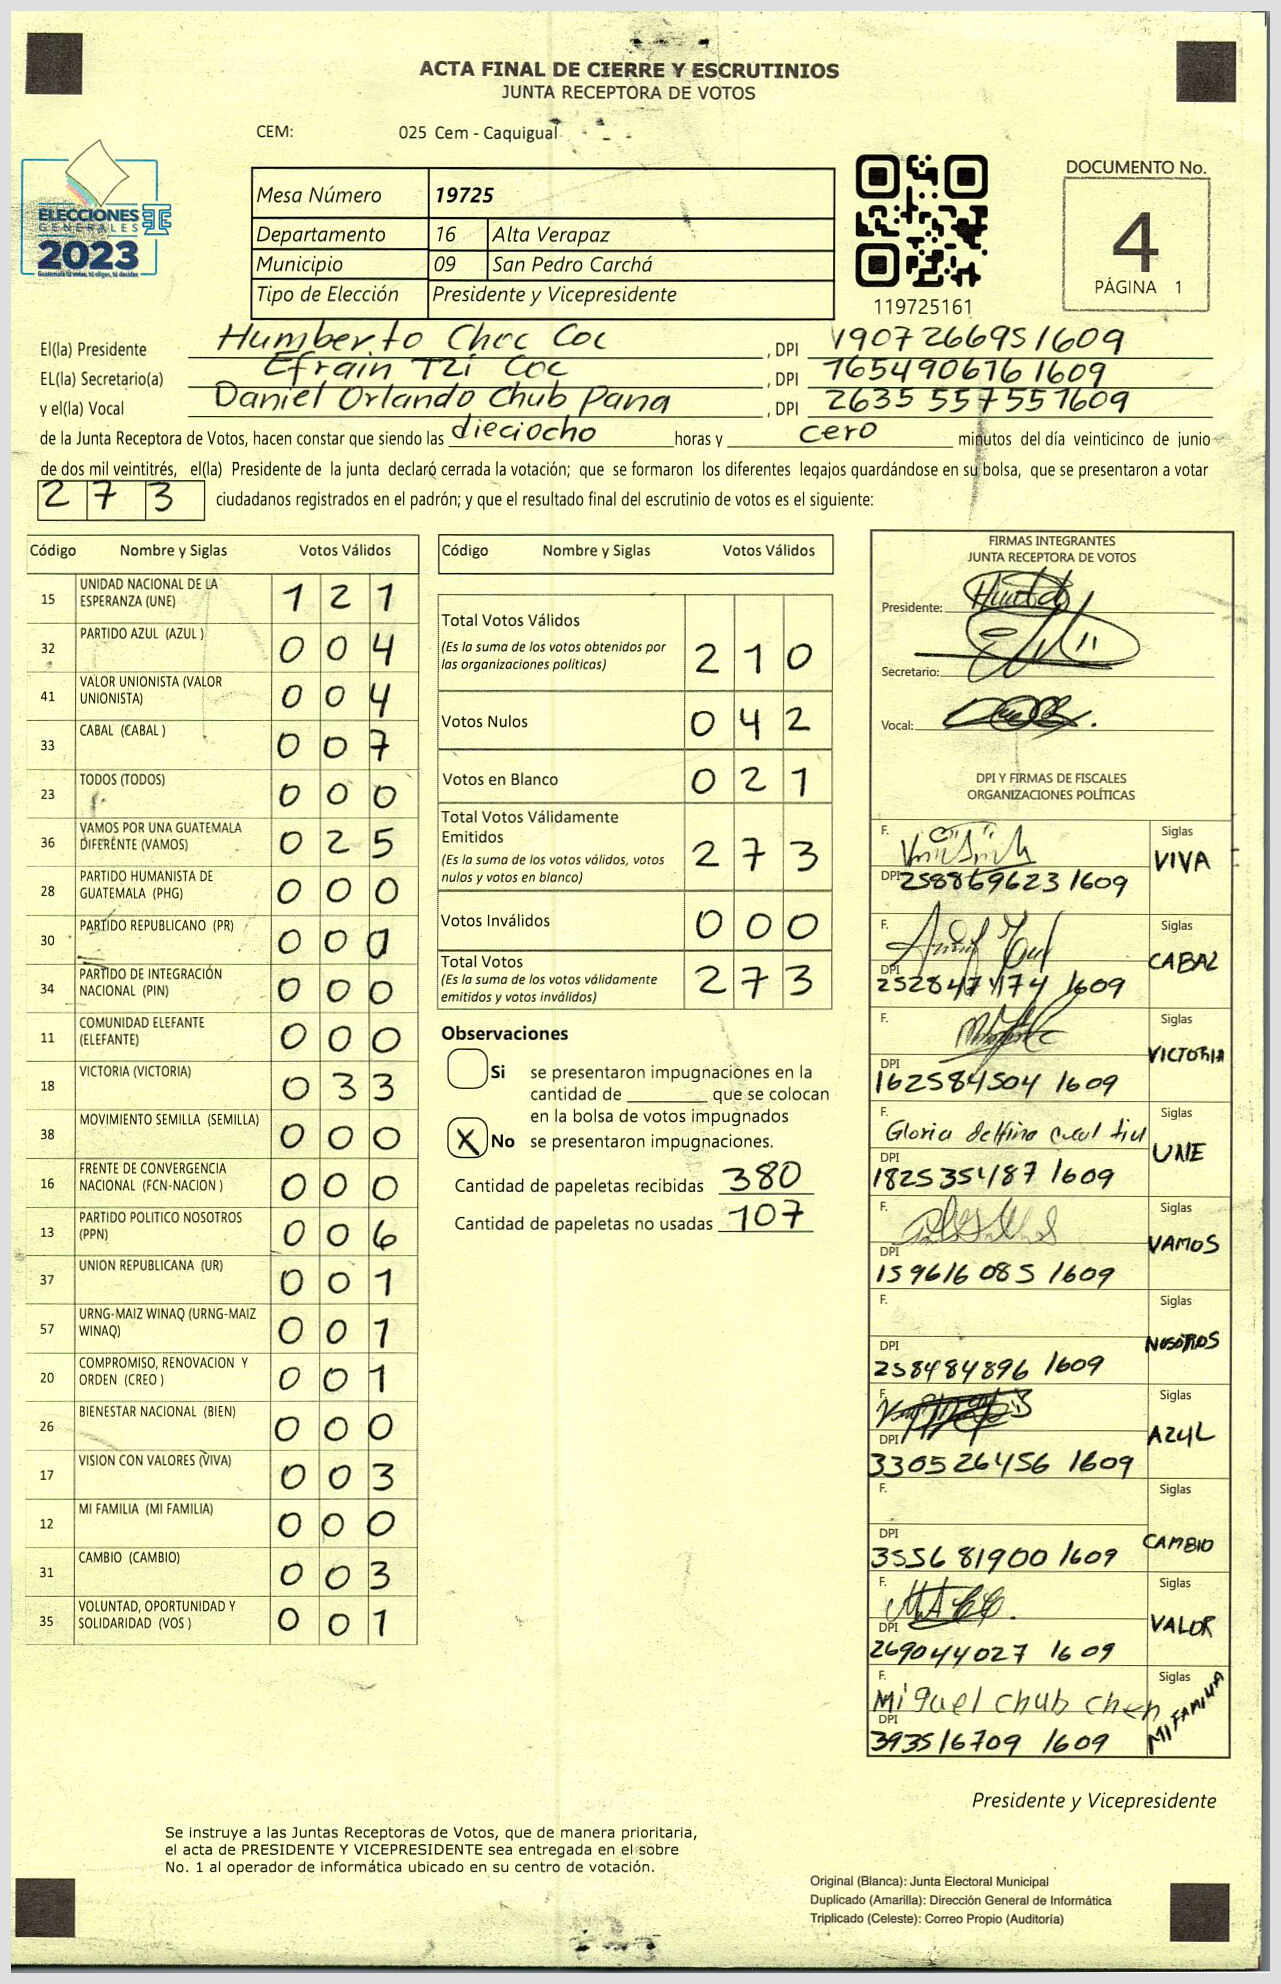 ACTA FINAL DE CIERRE Y ESCRUTINIOS
JUNTA RECEPTORA DE VOTOS
CEM: 025 Cem - Caquigual
ELECCIONES
GENERALES
2023
Guatemala tú votas, tú eliges, tú decides
Mesa Número 19725
Departamento 16 Alta Verapaz
Municipio 09 San Pedro Carchá
Tipo de Elección Presidente y Vicepresidente
119725161
DOCUMENTO No.
4
PÁGINA 1
El(la) Presidente Humberto Choc Coc, DPI 1907266951609
EL(la) Secretario(a) Efrain Tzi Coc, DPI 1654906761609
y el(la) Vocal Daniel Orlando Chub Pana, DPI 2635557551609
de la Junta Receptora de Votos, hacen constar que siendo las dieciocho horas y cero minutos del día veinticinco de junio
de dos mil veintitrés, el(la) Presidente de la junta declaró cerrada la votación; que se formaron los diferentes legajos guardándose en su bolsa, que se presentaron a votar
273 ciudadanos registrados en el padrón; y que el resultado final del escrutinio de votos es el siguiente:
Código Nombre y Siglas Votos Válidos
15 UNIDAD NACIONAL DE LA ESPERANZA (UNE) 1 2 1
32 PARTIDO AZUL (AZUL ) 0 0 4
41 VALOR UNIONISTA (VALOR UNIONISTA) 0 0 4
33 CABAL (CABAL ) 0 0 7
23 TODOS (TODOS) 0 0 0
36 VAMOS POR UNA GUATEMALA DIFERENTE (VAMOS) 0 2 5
28 PARTIDO HUMANISTA DE GUATEMALA (PHG) 0 0 0
30 PARTIDO REPUBLICANO (PR) 0 0
34 PARTIDO DE INTEGRACIÓN NACIONAL (PIN) 0 0 0
11 COMUNIDAD ELEFANTE (ELEFANTE) 0 0 0
18 VICTORIA (VICTORIA) 0 3 3
38 MOVIMIENTO SEMILLA (SEMILLA) 0 0 0
16 FRENTE DE CONVERGENCIA NACIONAL (FCN-NACION ) 0 0 0
13 PARTIDO POLITICO NOSOTROS (PPN) 0 0 6
37 UNION REPUBLICANA (UR) 0 0 1
57 URNG-MAIZ WINAQ (URNG-MAIZ WINAQ) 0 0 1
20 COMPROMISO, RENOVACION Y ORDEN (CREO ) 0 0 1
26 BIENESTAR NACIONAL (BIEN) 0 0 0
17 VISION CON VALORES (VIVA) 0 0 3
12 MI FAMILIA (MI FAMILIA) 0 0 0
31 CAMBIO (CAMBIO) 0 0 3
35 VOLUNTAD, OPORTUNIDAD Y SOLIDARIDAD (VOS ) 0 0 1
Código Nombre y Siglas Votos Válidos
Total Votos Válidos
(Es la suma de los votos obtenidos por las organizaciones políticas) 2 1 0
Votos Nulos 0 4 2
Votos en Blanco 0 2 1
Total Votos Válidamente Emitidos
(Es la suma de los votos válidos, votos nulos y votos en blanco) 2 7 3
Votos Inválidos 0 0 0
Total Votos
(Es la suma de los votos válidamente emitidos y votos inválidos) 2 7 3
Observaciones
Si se presentaron impugnaciones en la
cantidad de ________ que se colocan
en la bolsa de votos impugnados
X No se presentaron impugnaciones.
Cantidad de papeletas recibidas 380
Cantidad de papeletas no usadas 107
FIRMAS INTEGRANTES
JUNTA RECEPTORA DE VOTOS
Presidente:
Secretario:
Vocal:
DPI Y FIRMAS DE FISCALES
ORGANIZACIONES POLÍTICAS
F. Siglas
DPI 258869623 1609 VIVA
F. Siglas
DPI 252847474 1609 CABAL
F. Siglas
DPI 162584504 1609 VICTORIA
F. Gloria Siglas
DPI 182535487 1609 UNE
F. Siglas
DPI 159616085 1609 VAMOS
F. Siglas
DPI 258484896 1609 NOSOTROS
F. Siglas
DPI 330526456 1609 AZUL
F. Siglas
DPI 355681900 1609 CAMBIO
F. Siglas
DPI 269044027 1609 VALOR
F. Miguel chub chen Siglas
DPI 393516709 1609 MI FAMILIA
Presidente y Vicepresidente
Se instruye a las Juntas Receptoras de Votos, que de manera prioritaria,
el acta de PRESIDENTE Y VICEPRESIDENTE sea entregada en el sobre
No. 1 al operador de informática ubicado en su centro de votación.
Original (Blanca): Junta Electoral Municipal
Duplicado (Amarilla): Dirección General de Informática
Triplicado (Celeste): Correo Propio (Auditoría)